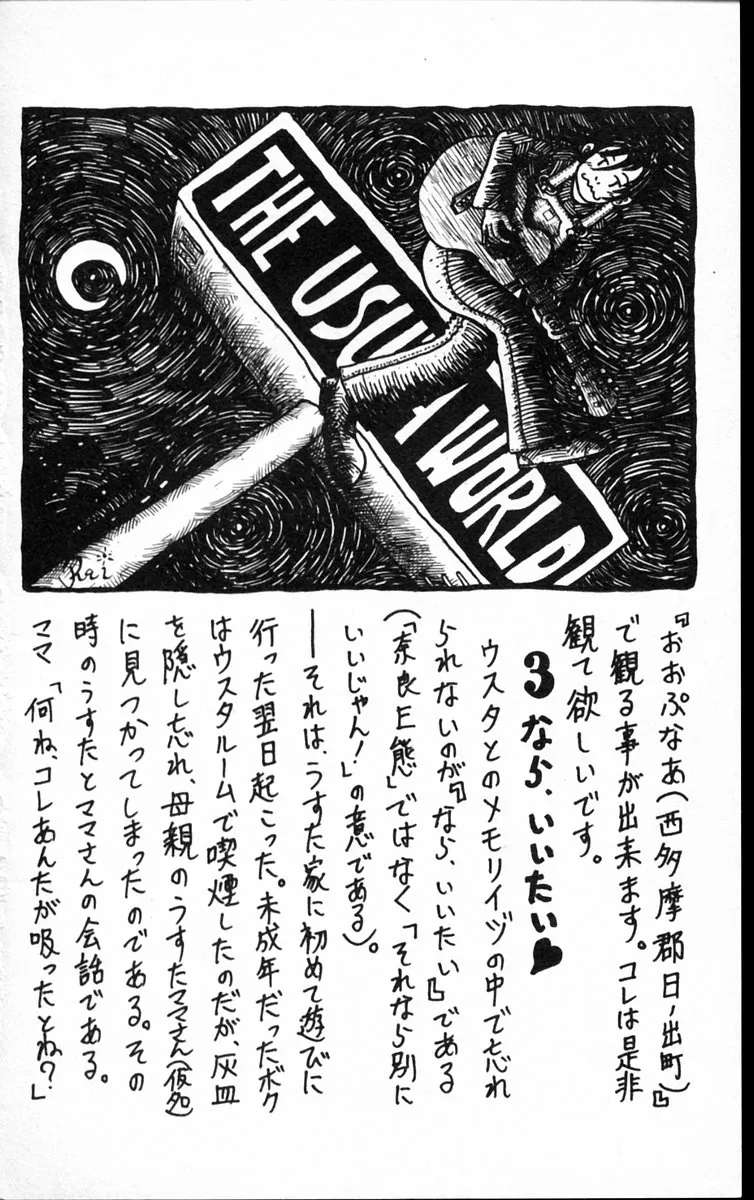 THE USU A WORLD
Rei
『おおぷなあ(西多摩郡日ノ出町)』
で観る事が出来ます。コレは是非
観て欲しいです。
3 なら、いいたい♥
ウスタとのメモリイヅの中で忘れ
られないのが『なら、いいたい』である
(「奈良上態」ではなく「それなら別に
いいじゃん!」の意である)。
──それは、うすた家に初めて遊びに
行った翌日起こった。未成年だったボク
はウスタルームで喫煙したのだが、灰皿
を隠し忘れ、母親のうすたママさん(仮名)
に見つかってしまったのである。その
時のうすたとママさんの会話である。
ママ「何ね、コレあんたが吸ったとね?」